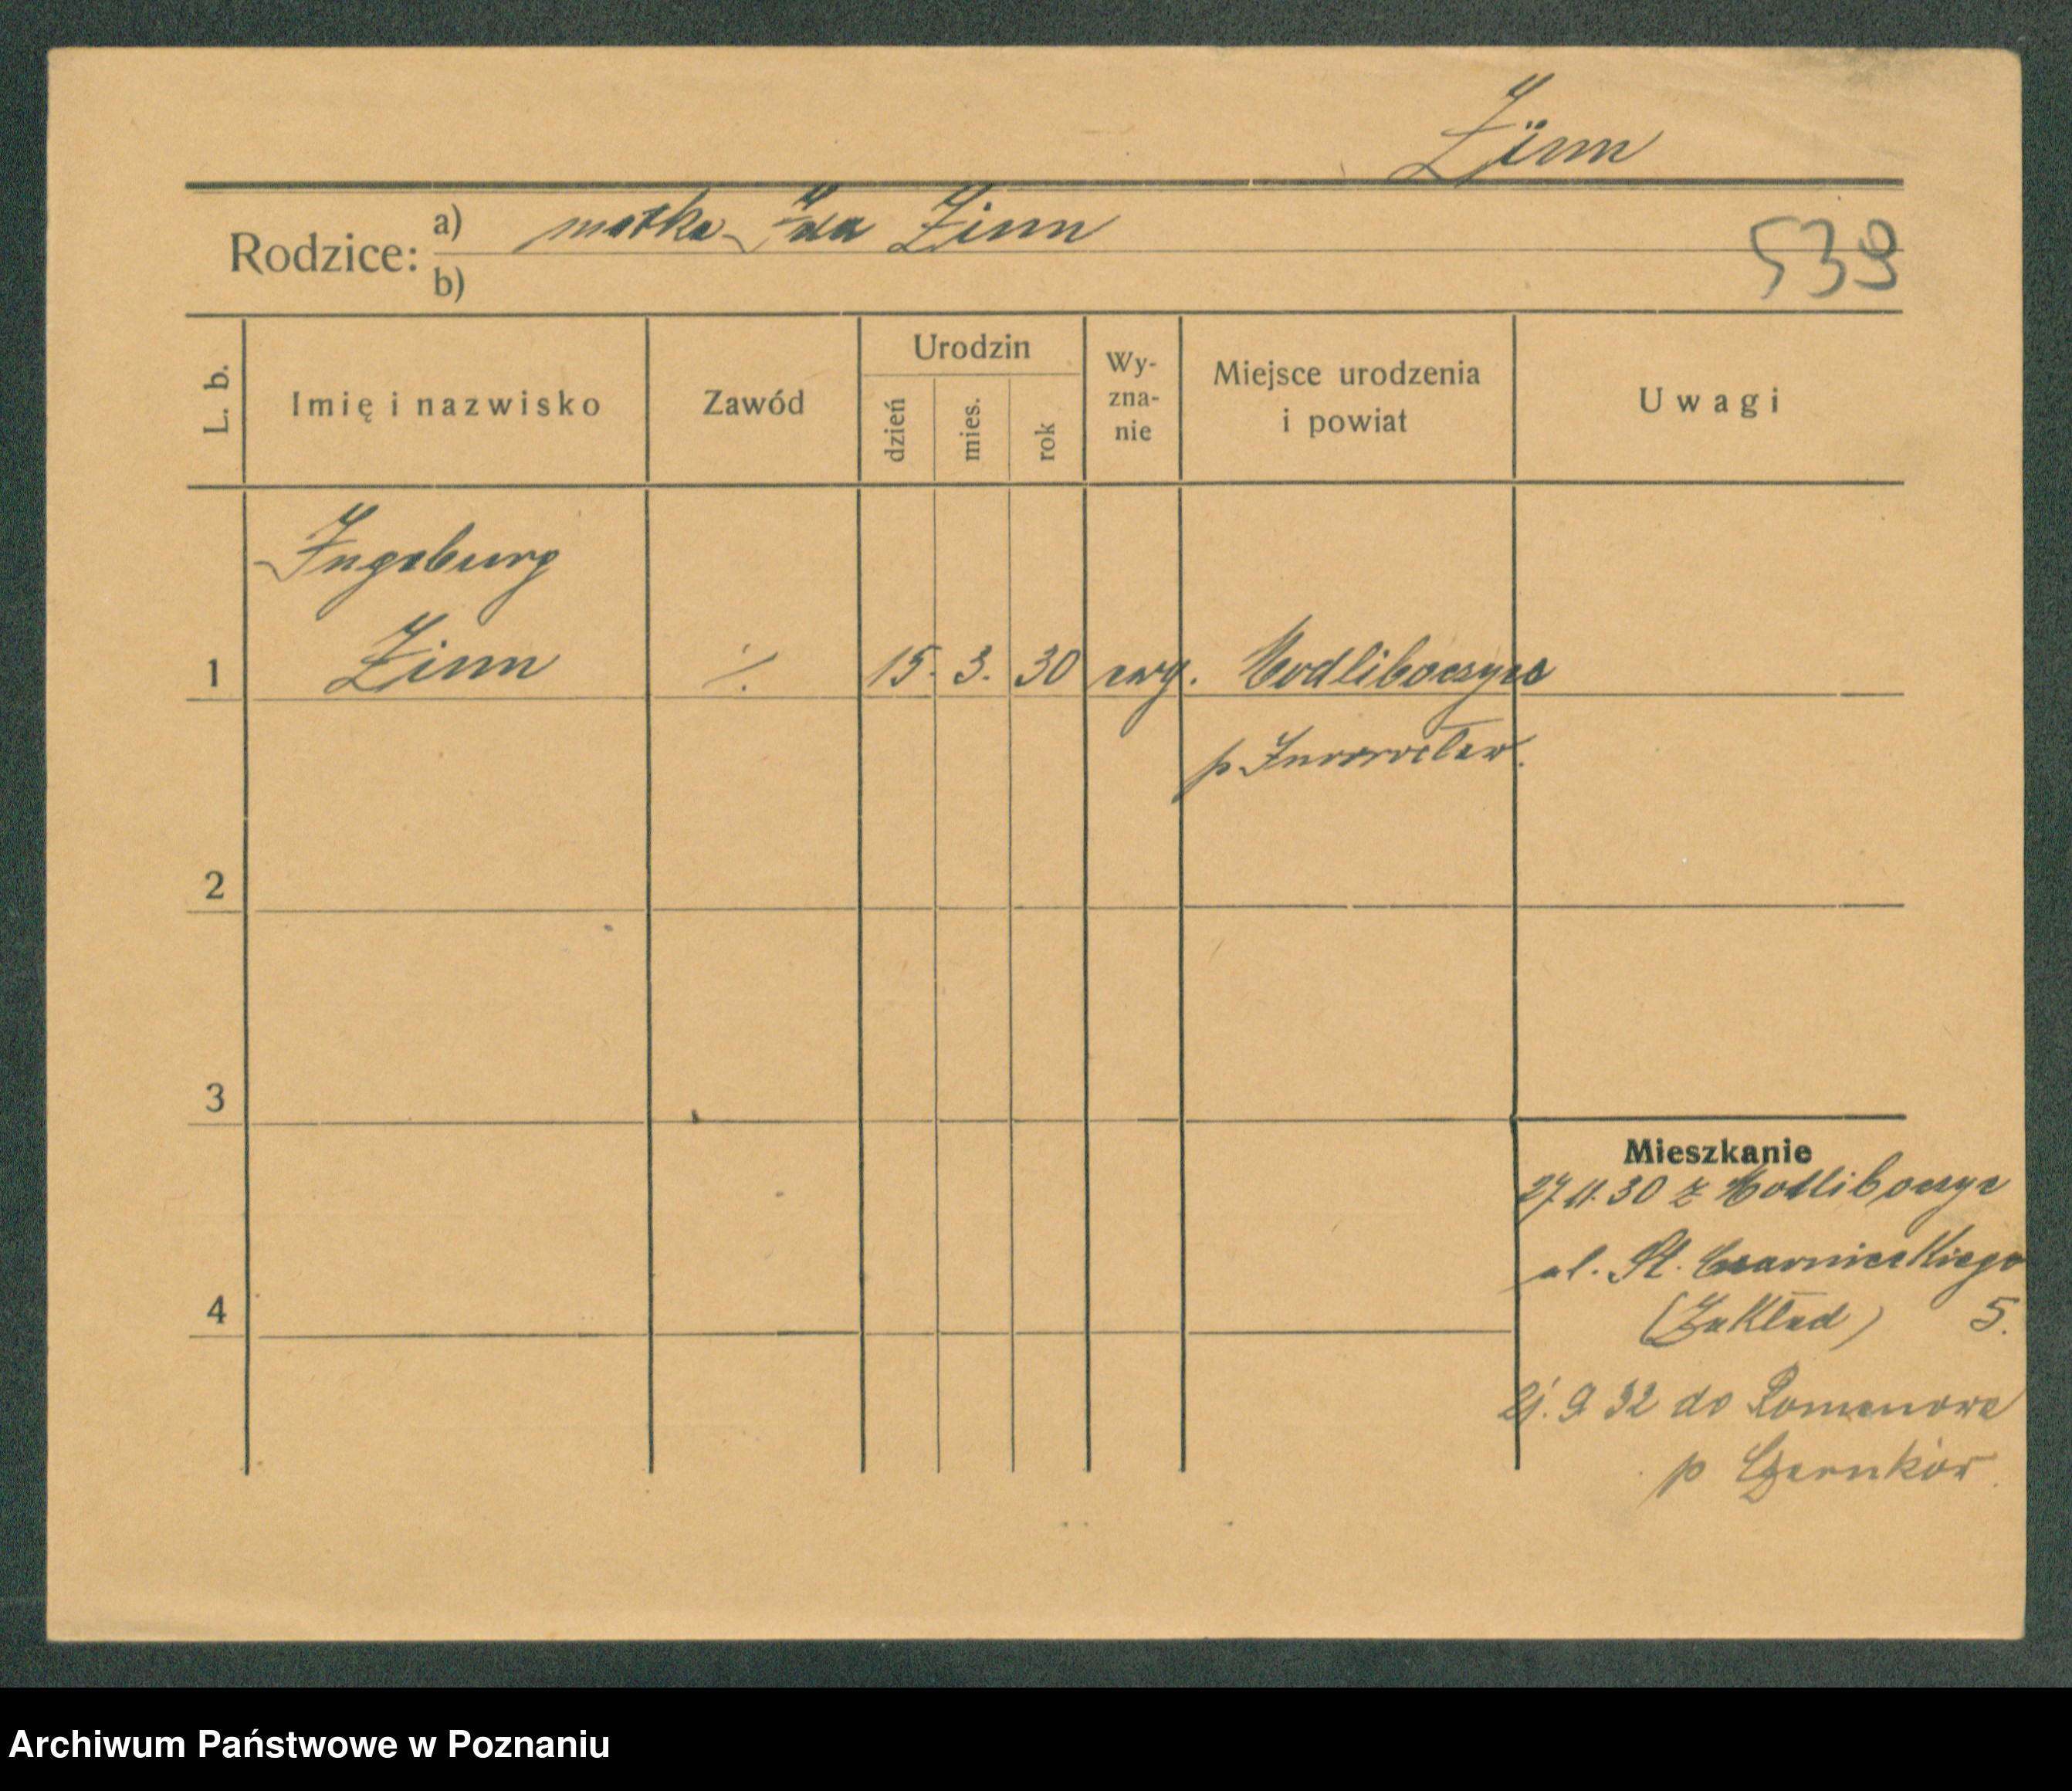 Zinn
Rodzice:
a) matka Ida Zinn
b)
539
L. b.
Imię i nazwisko
Zawód
Urodzin
dzień
mies.
rok
Wy-
zna-
nie
Miejsce urodzenia
i powiat
Uwagi
Ingeburg
1 Zinn ./. 15. 3. 30 ewg. Modliboczyce
p Inowrocław.
2
3
4
Mieszkanie
27 11. 30 z Modliboczyc
ul. St. Czarnieckiego
(Zakład) 5.
21. 9 32 do Romanowa
p Czarnków.
Archiwum Państwowe w Poznaniu